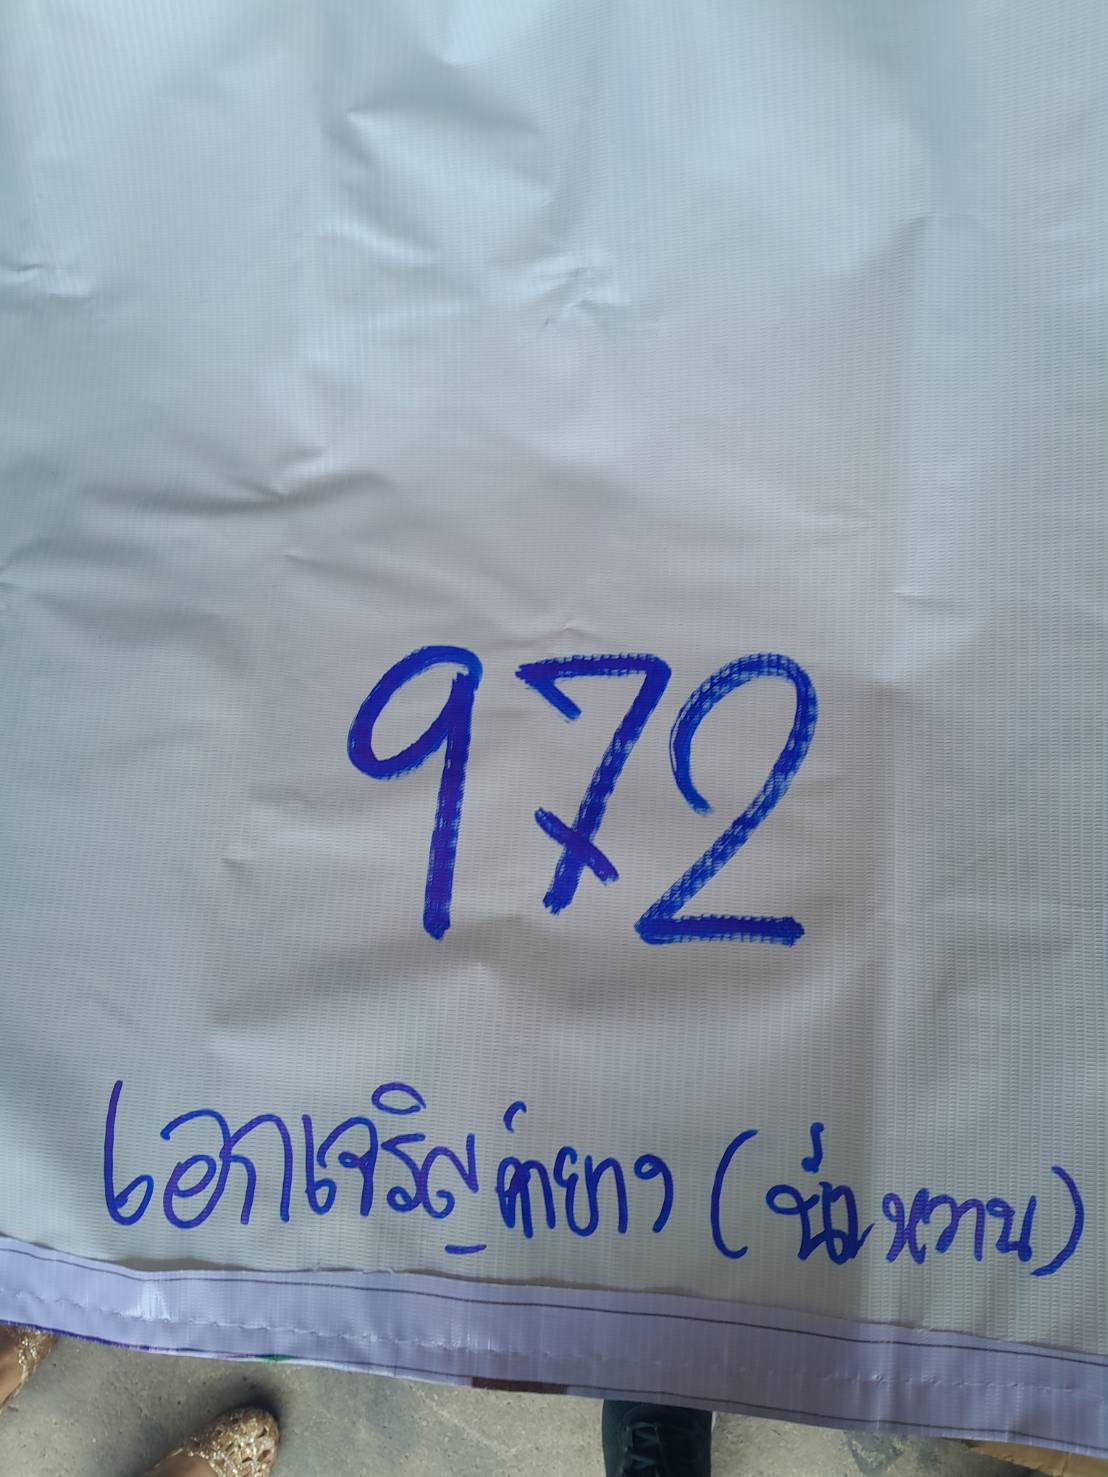 972
เอกเจริญค้ายาง (น้ำหวาน)